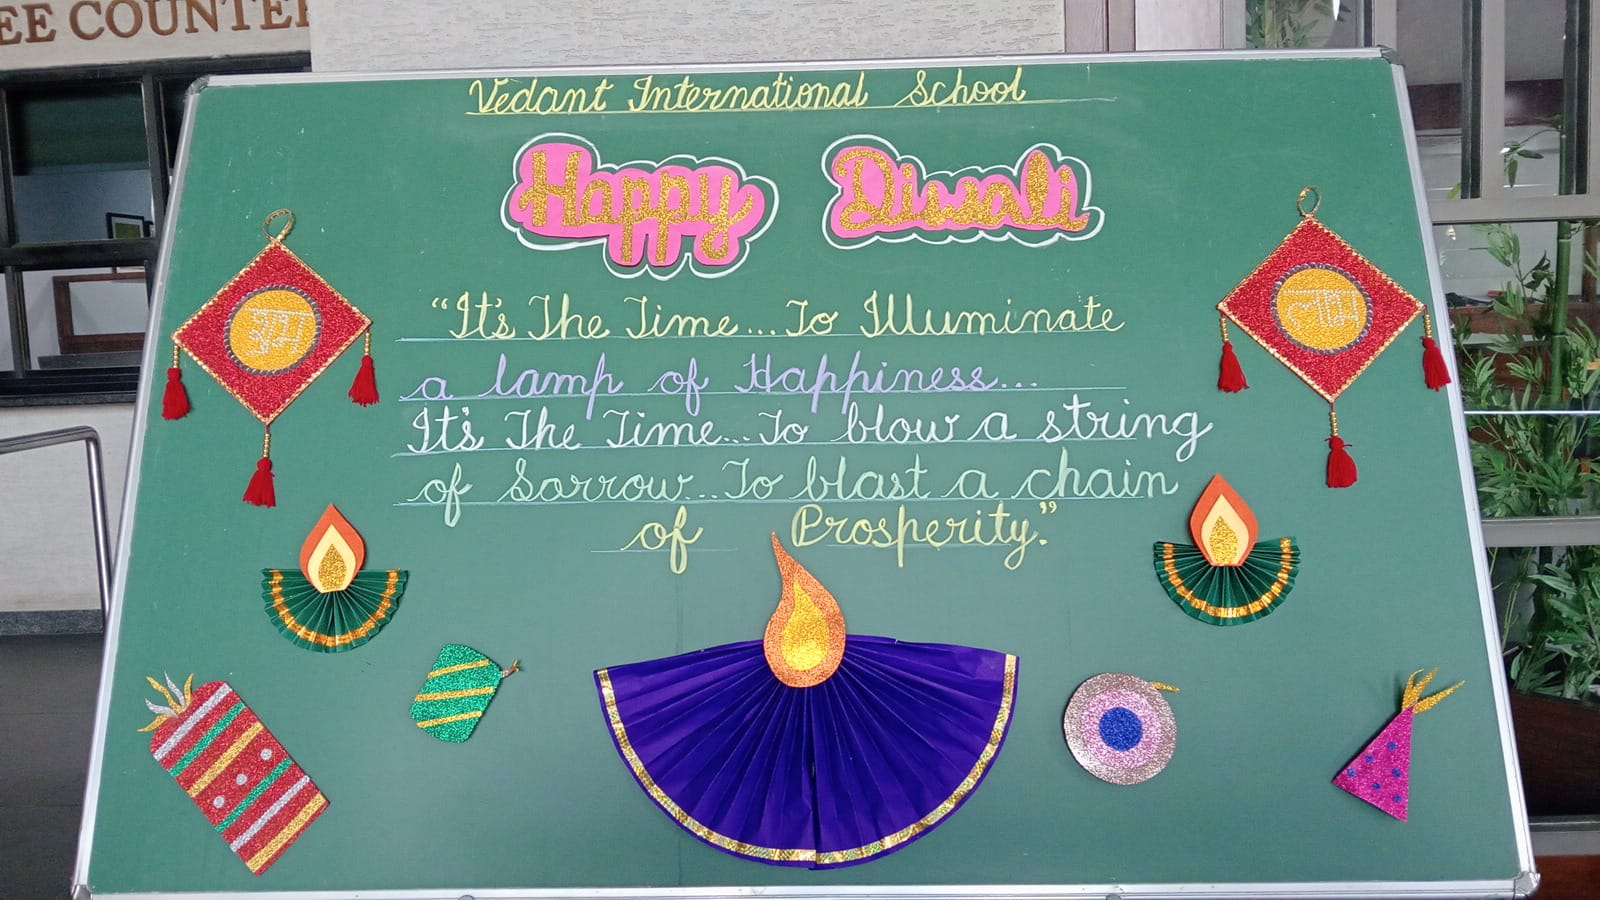 EE COUNTER
Vedant International School
Happy Diwali
शुभ
लाभ
"It's The Time...To Illuminate
a lamp of Happiness...
It's The Time...To blow a string
of Sorrow...To blast a chain
of Prosperity."